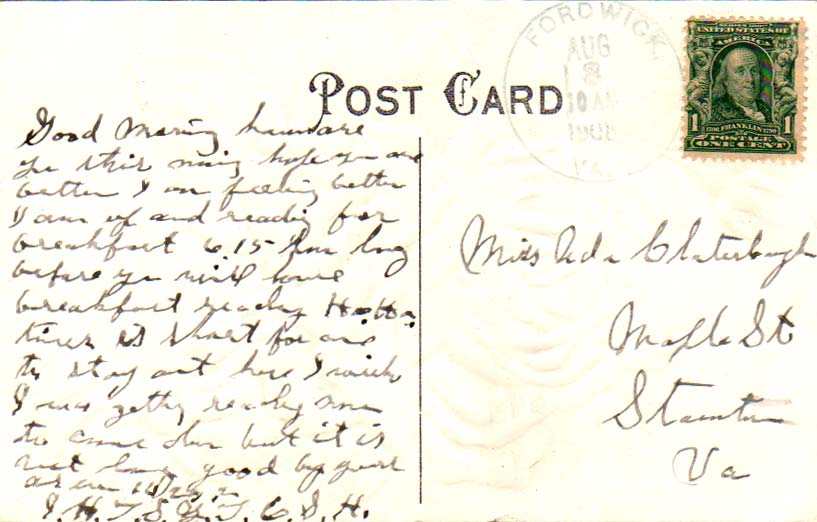 POST CARD
FORDWICK
AUG
10 AM
1908
VA.
SERIES 1902
UNITED STATES OF
AMERICA
1 1706 FRANKLIN 1790 1
POSTAGE
ONE CENT
Good Morning how are
you this morning hope you are
better I am feeling better
I am up and ready for
breakfast 6.15 how long
before you will have
breakfast ready Ha. Ha.
times is short for me
to stay out here I wish
I was getting ready now
to come but it is
not long good by
as ever
I. H. T. S. Y. T. C. S. H.
Miss Ada Claterbaugh
Maple St
Staunton
Va